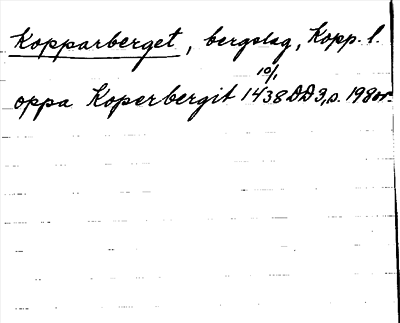 Kopparberget, bergslag, Kopp. l.
oppa Koperbergit 10/1 1438 DD3, s. 198 or.